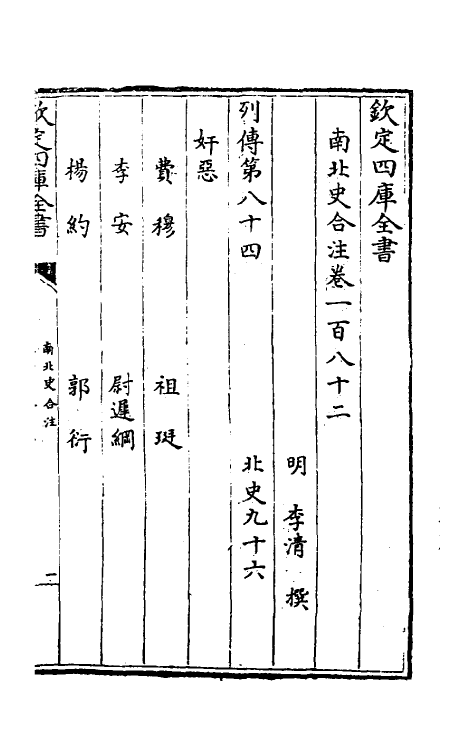 欽定四庫全書
南北史合注卷一百八十二
明 李清 撰
列傳第八十四 北史九十六
奸惡
費穆 祖珽
李安 尉遲綱
楊約 郭衍
欽定四庫全書 南北史合注 一